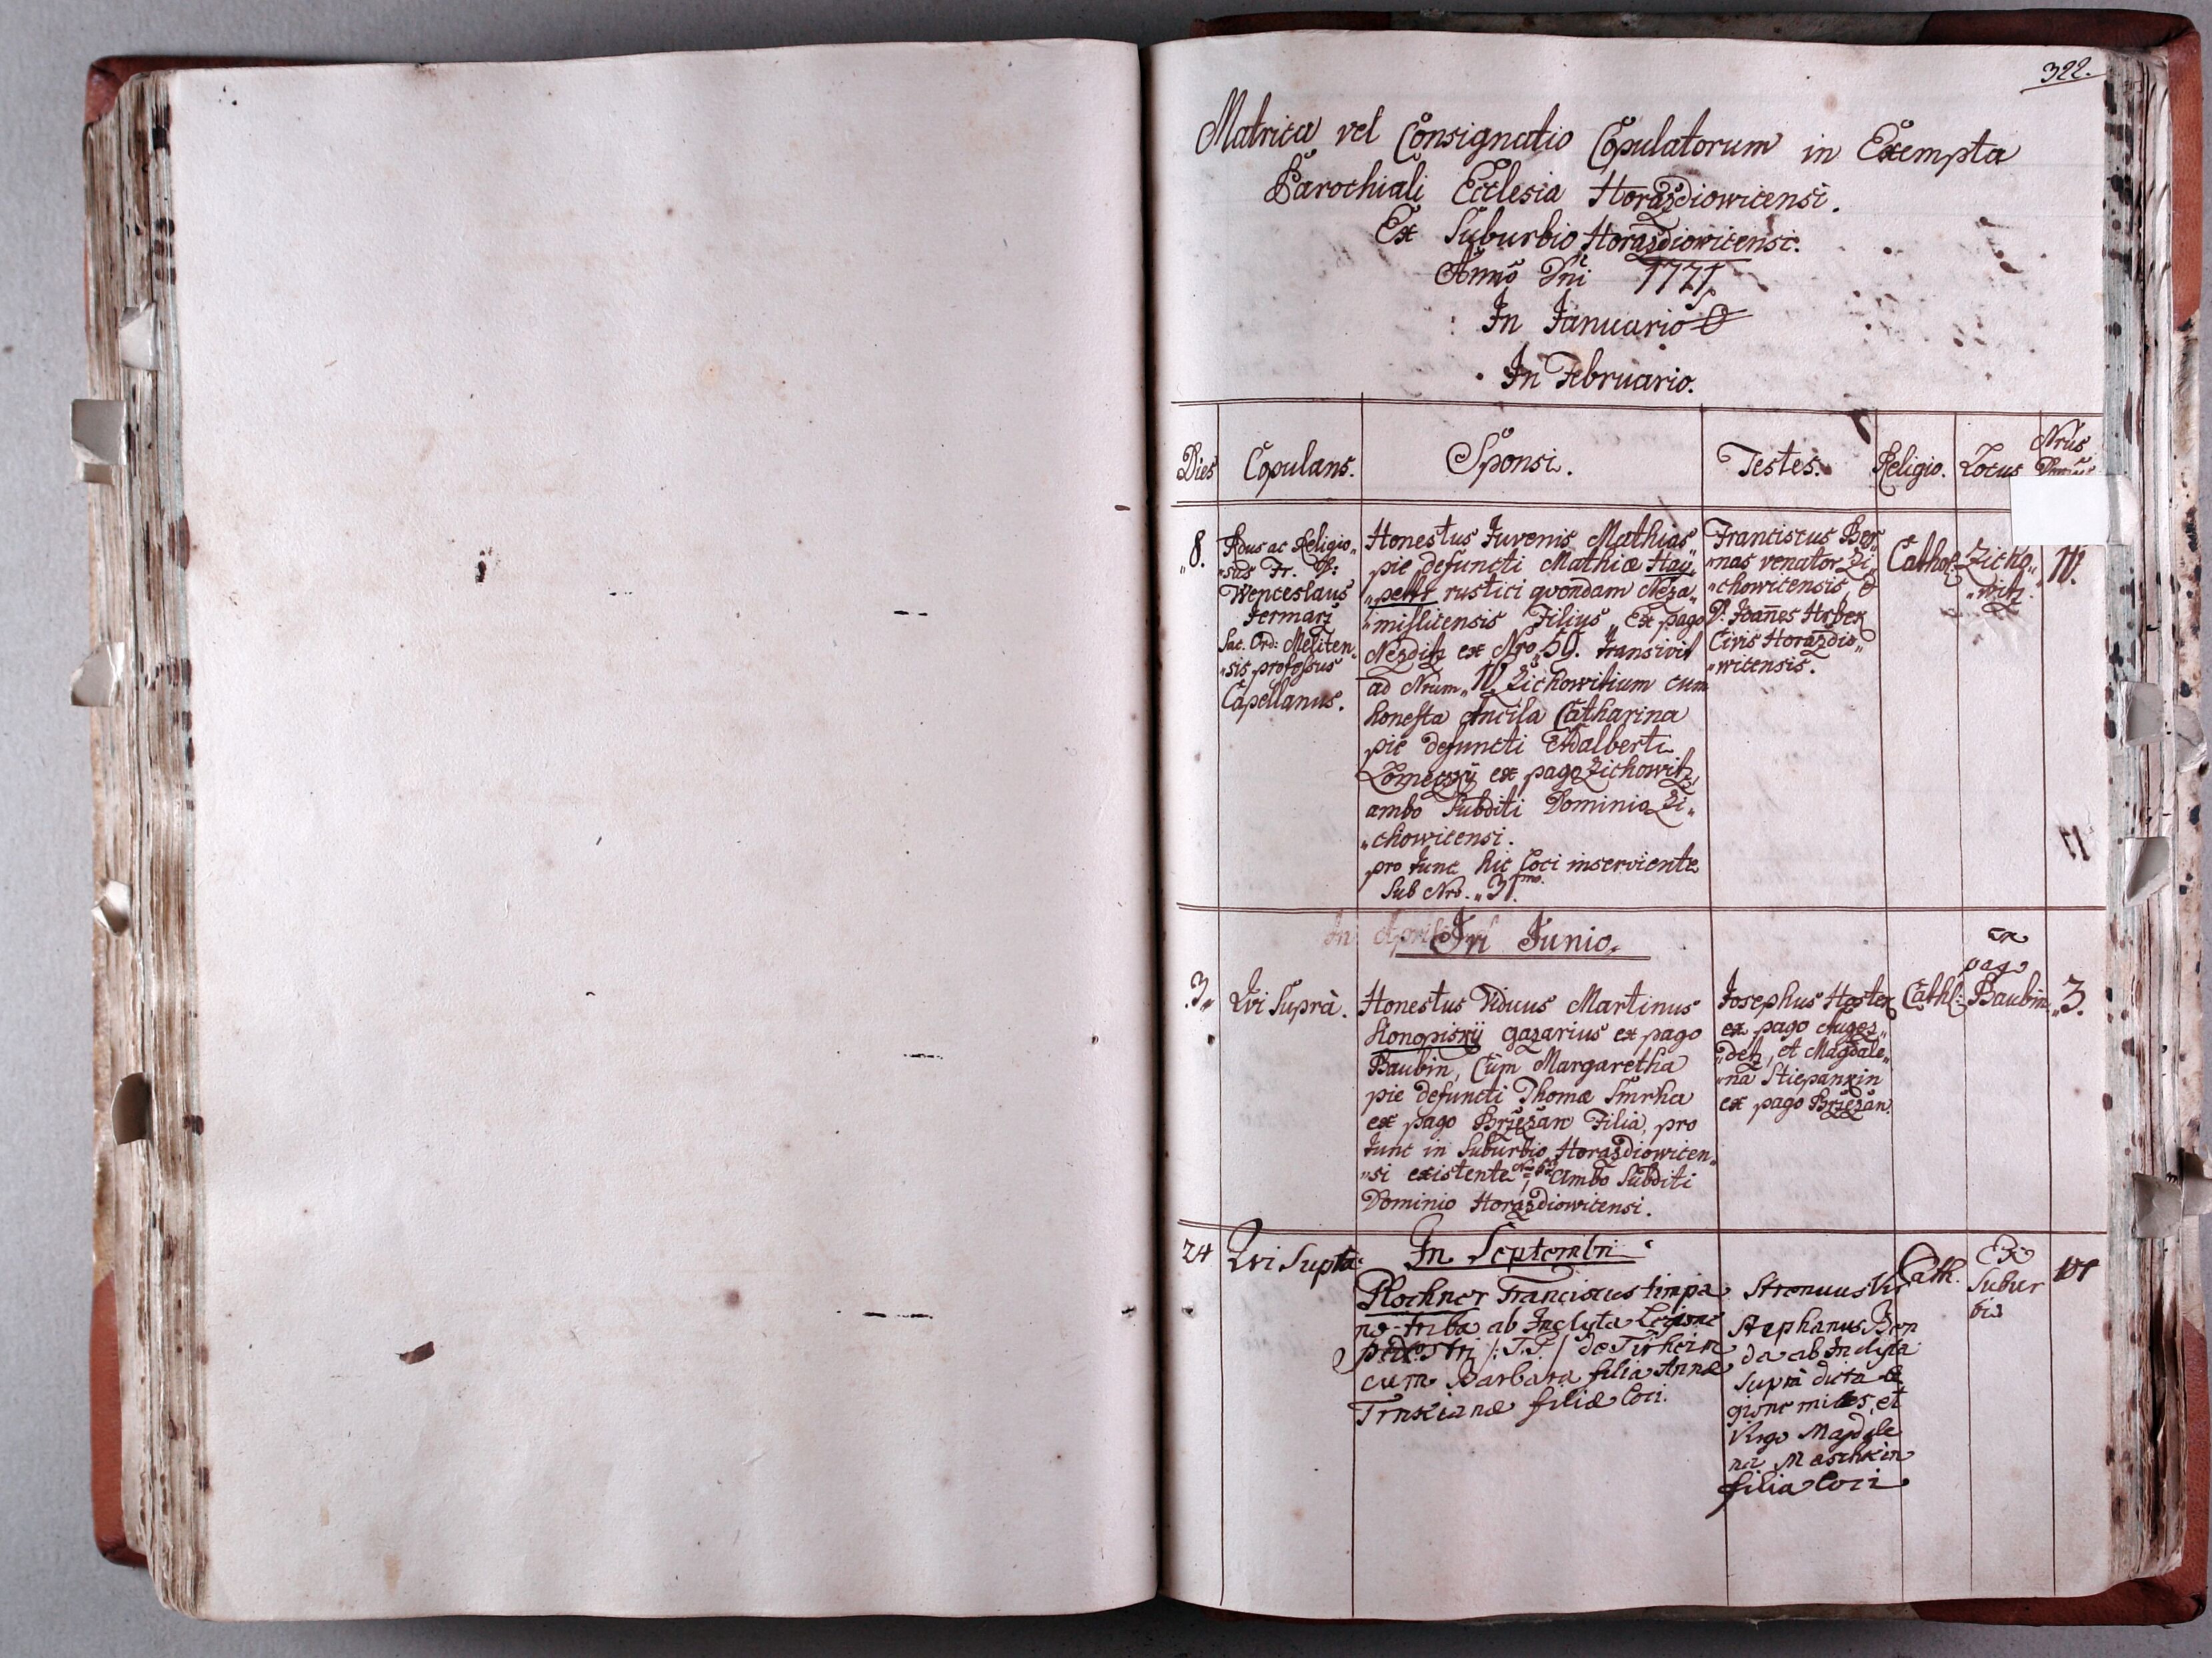 322.
Matrica vel Consignatio Copulatorum in Exempta
Parochiali Ecclesia Horazdiowicensi.
Ex Suburbio Horazdiowicensi.
Anno Dni 1771.
In Januario
In Februario.
Dies Copulans. Sponsi. Testes. Religio. Locus Nrus
„8.
Rdus ac Religio„
„sus Fr. P:
Wenceslaus
Jermarz
Sac. Ord: Meliten„
„sis professus
Capellanus.
Honestus Juvenis Mathias
pie defuncti Mathiæ Hay„
rustici qvondam Neza„
„mislicensis Filius, Ex pago
Nezditz ex Nro „50. transivit
ad Nrum „ Zichowitium cum
honesta Ancila Catharina
pie defuncti Adalberti
Lomeczky ex pago Zichowitz
ambo Subditi Dominio Zi„
„chowicensi.
pro tunc hic Loci inserviente
Sub Nro. „31mo.
Franciscus Ber„
„nas venator Zi„
„chowicensis, &
D. Joañes Hrbek
Civis Horazdio„
„wicensis.
Cathol:
Zicho„
„witz.
In Aprili
In Junio.
3„
Qvi Suprà.
Honestus Viduus Martinus
Konopisky gazarius ex pago
Baubin, Cum Margaretha
pie defuncti Thomæ Smrha
ex pago Brzezan Filia, pro
tunc in Suburbio Horazdiowicen„
„si existente ambo Subditi
Dominio Horazdiowicensi.
Josephus Hostek
ex pago Augez„
„detz, et Magdale„
„na Stiepankin
ex pago Brzezan.
Cathl:
ex
pago
Baubin
„3.
24
Qvi Supra:
In Septembri
Plochner Franciscus timpa
no-triba ab Inclyta Legione
pedestri /: T.T. / de Tirheim
cum Barbara filia Annæ
Trnkianæ filiæ Loci.
Strenuus Vir
Stephanus Ben
da ab Inclyta
supra dicta Le
gione miles, et
Virgo Magdale
na Maschkin
filia Loci
Cath.
Ex
Subur
bio